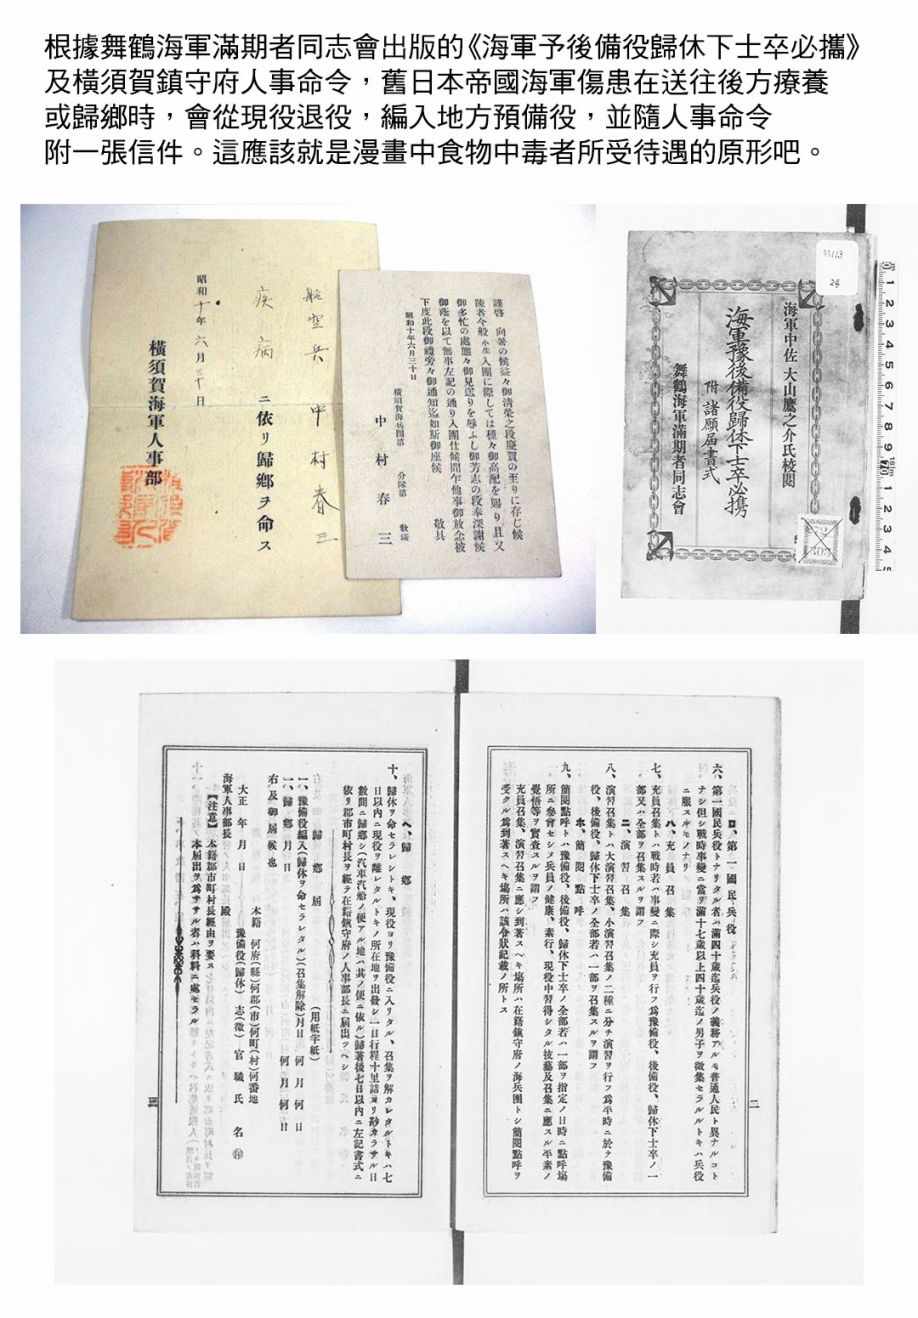 根據舞鶴海軍滿期者同志會出版的《海軍予後備役歸休下士卒必攜》
及橫須賀鎮守府人事命令，舊日本帝國海軍傷患在送往後方療養
或歸鄉時，會從現役退役，編入地方預備役，並隨人事命令
附一張信件。這應該就是漫畫中食物中毒者所受待遇的原形吧。
航空兵 中村春三
疾病ニ依リ歸鄉ヲ命ス
昭和十年六月三十日
橫須賀海軍人事部
謹啓 向暑の候益々御清榮之段慶賀の至りに存じ候
陳者今般小生入團に際しては種々御高配を賜り且又
御多忙の處態々御見送りを辱ふし御芳志の段奉深謝候
御蔭を以て無事左記の通り入團仕候間乍他事御放念被
下度此段御禮旁々御通知迄如斯御座候
敬具
昭和十年六月三十日
橫須賀海兵團第 分隊第 教班
中村春三
海軍中佐 大山鷹之介氏校閱
海軍豫後備役歸休下士卒必携
附 諸願屆書式
舞鶴海軍滿期者同志會
ロ、第一國民兵役
六、第一國民兵役トナリタル者ハ滿四十歲迄兵役ノ義務アルモ普通人民ト異ナルコト
ナシ但シ戰時事變ニ當ヲ滿十七歲以上四十歲迄ノ男子ヲ徵集セラルルトキハ兵役
ニ服スルモノナリ
ハ、充員召集
七、充員召集トハ戰時若ハ事變ニ際シ充員ヲ行フ爲豫備役、後備役、歸休下士卒ノ一
部又ハ全部ヲ召集スルヲ謂フ
ニ、演習召集
八、演習召集トハ大演習召集、小演習召集ノ二種ニ分チ演習ヲ行フ爲平時ニ於テ豫備
役、後備役、歸休下士卒ノ全部若ハ一部ヲ召集スルヲ謂フ
ホ、簡閱點呼
九、簡閱點呼トハ豫備役、後備役、歸休下士卒ノ全部若ハ一部ヲ指定ノ日時ニ點呼塲
所ニ參會セシメ兵員ノ健康、素行、現役中習得シタル技藝及召集ニ應スル平素ノ
覺悟等ヲ實査スルヲ謂フ
充員召集、演習召集ニ應シ到著スヘキ塲所ハ在籍鎭守府ノ海兵團トシ簡閱點呼ヲ
受クル爲到著スヘキ塲所ハ該令狀記載ノ所トス
二
ヘ、歸鄕
十、歸休ヲ命セラレシトキ、現役ヨリ豫備役ニ入リタル、召集ヲ解カレタルトキハ七
日以內ニ現役ヲ離レタルトキノ所在地ヲ出發シ一日行程十里詰ヨリ尠カラサル日
數間ニ歸鄕シ(汽車汽船ノ便アル地ハ其ノ便ニ依ル)歸著後七日以內ニ左記書式ニ
依リ郡市町村長ヲ經テ在籍鎭守府ノ人事部長ニ屆出ツヘシ
歸鄕屆 (用紙半紙)
一、豫備役編入(歸休ヲ命セラレタル)(召集解除)月日 何月何日
一、歸鄕月日 何月何日
右及御屆候也
大正 年 月 日
本籍 何府(縣)何郡(市)何町(村)何番地
豫備役(歸休)志(徵)官職氏名㊞
海軍人事部長殿
【注意】本籍郡市町村長經由ヲ要ス
本屆出ヲ爲ササル者ハ科料ニ處セラル
四